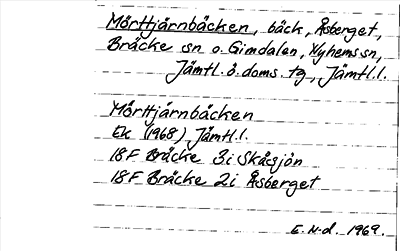 Mörttjärnbäcken, bäck, Åsberget,
Bräcke sn o. Gimdalen, Nyhems sn,
Jämtl. ö. doms. tg, Jämtl.l.
Mörttjärnbäcken
Ek (1968) Jämtl.l.
18F Bräcke 3i Skåsjön
18F Bräcke 2i Åsberget
E.N-d. 1969.